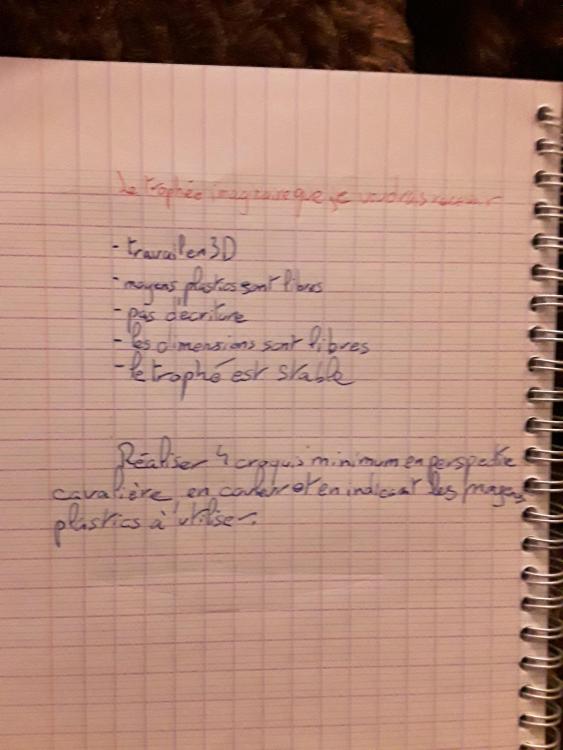 Le trophée imaginaire que je voudrais recevoir
- travail en 3D
- moyens plastics sont libres
- pas d'ecriture
- les dimensions sont libres
- le trophé est stable
Réaliser 4 croquis minimum en perspective
cavalière, en couleur et en indicant les moyens
plastics à utiliser.